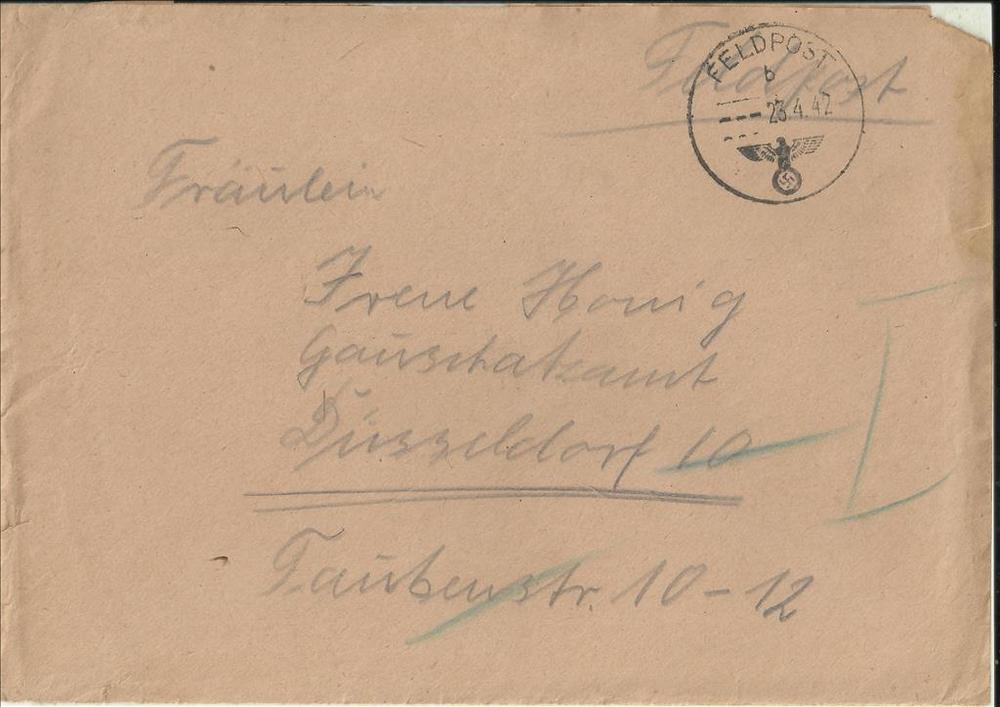 Feldpost
FELDPOST
b
23.4.42
Fräulein
Irene Honig
Gauschatzamt
Düsseldorf 10
Taubenstr. 10-12